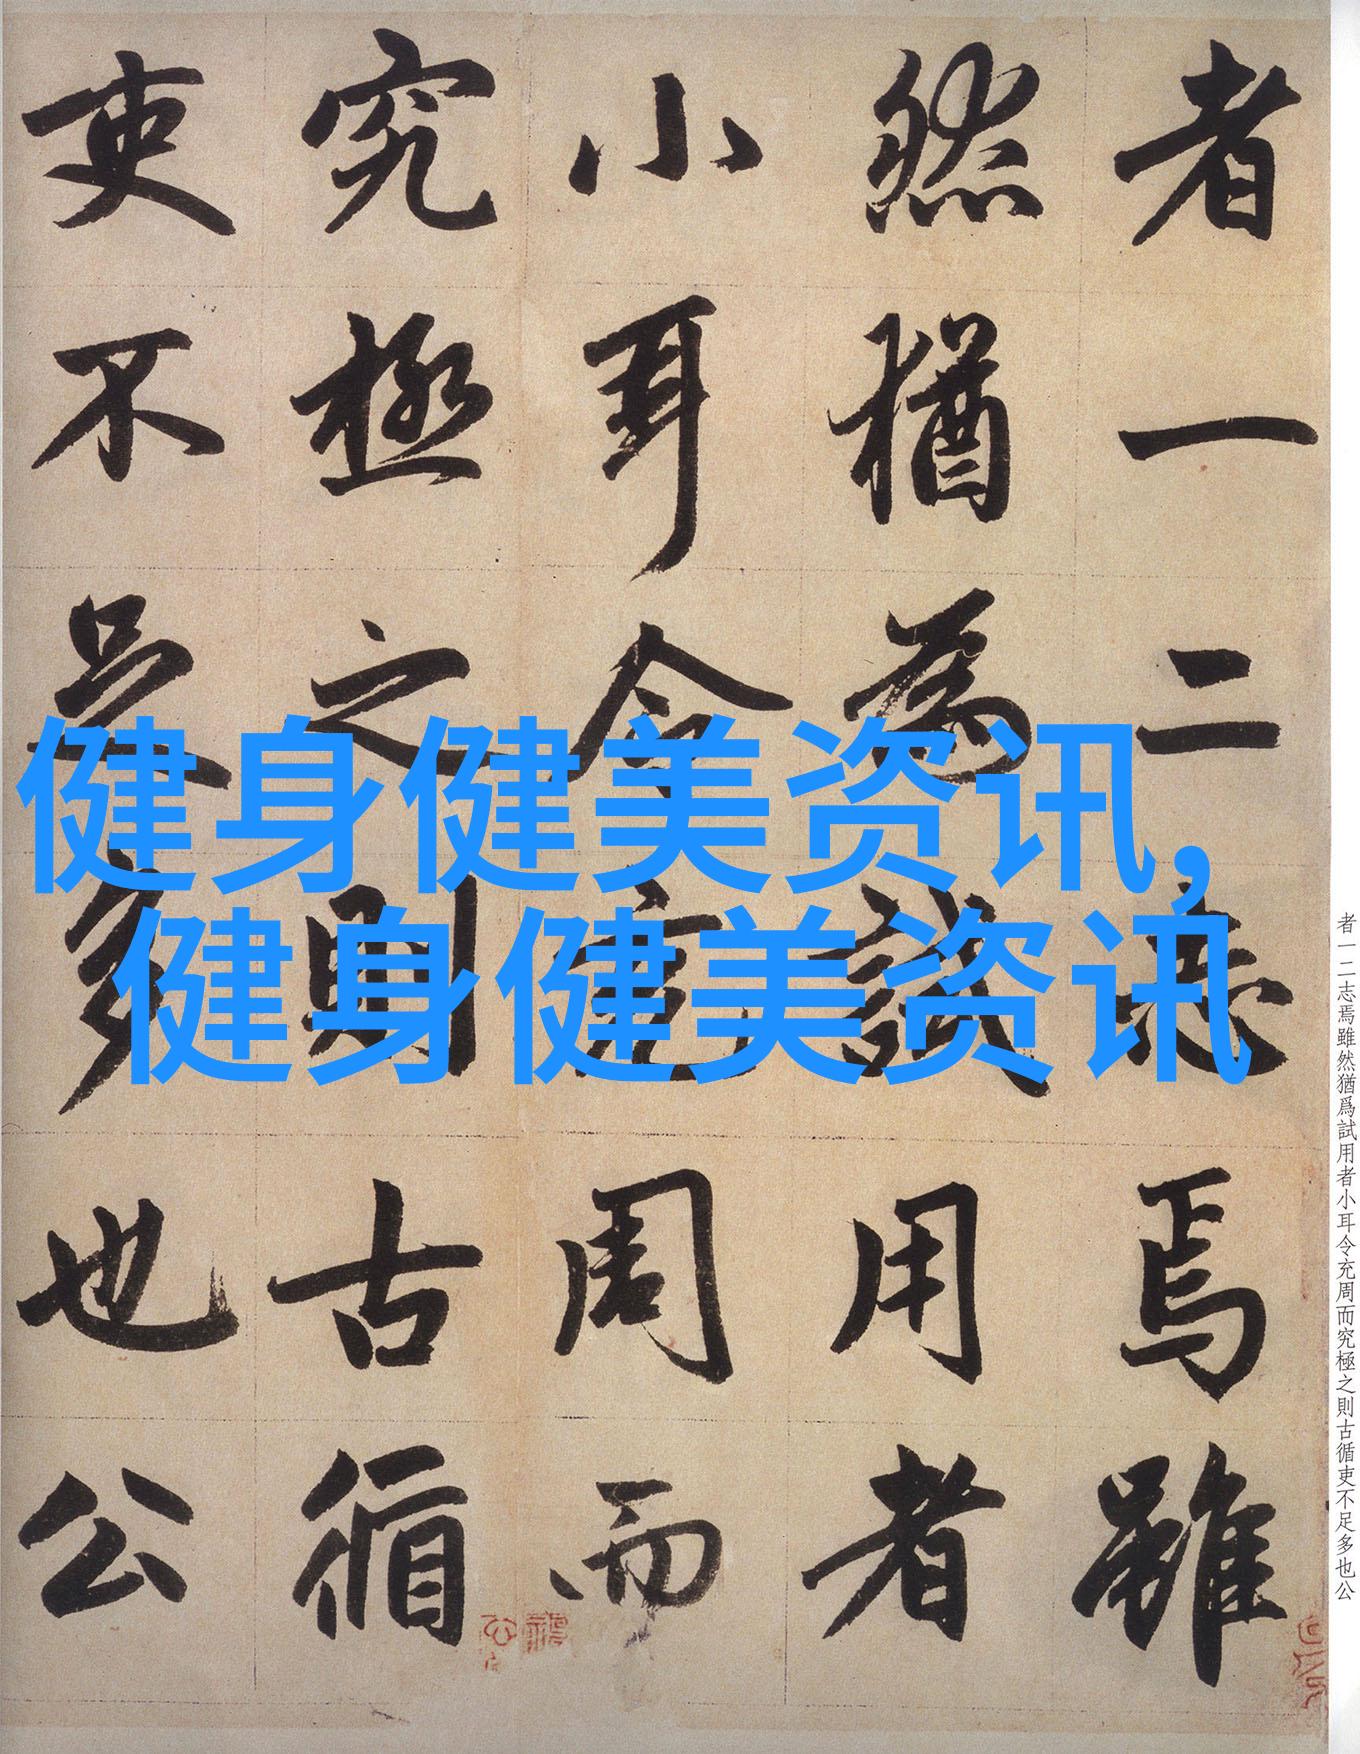 者一二志焉雖
然猶為試用者
小耳令充周而
究極之則古循
吏不足多也公
健身健美资讯,
健身健美资讯
者一二志焉雖然猶爲試用者小耳令充周而究極之則古循吏不足多也公